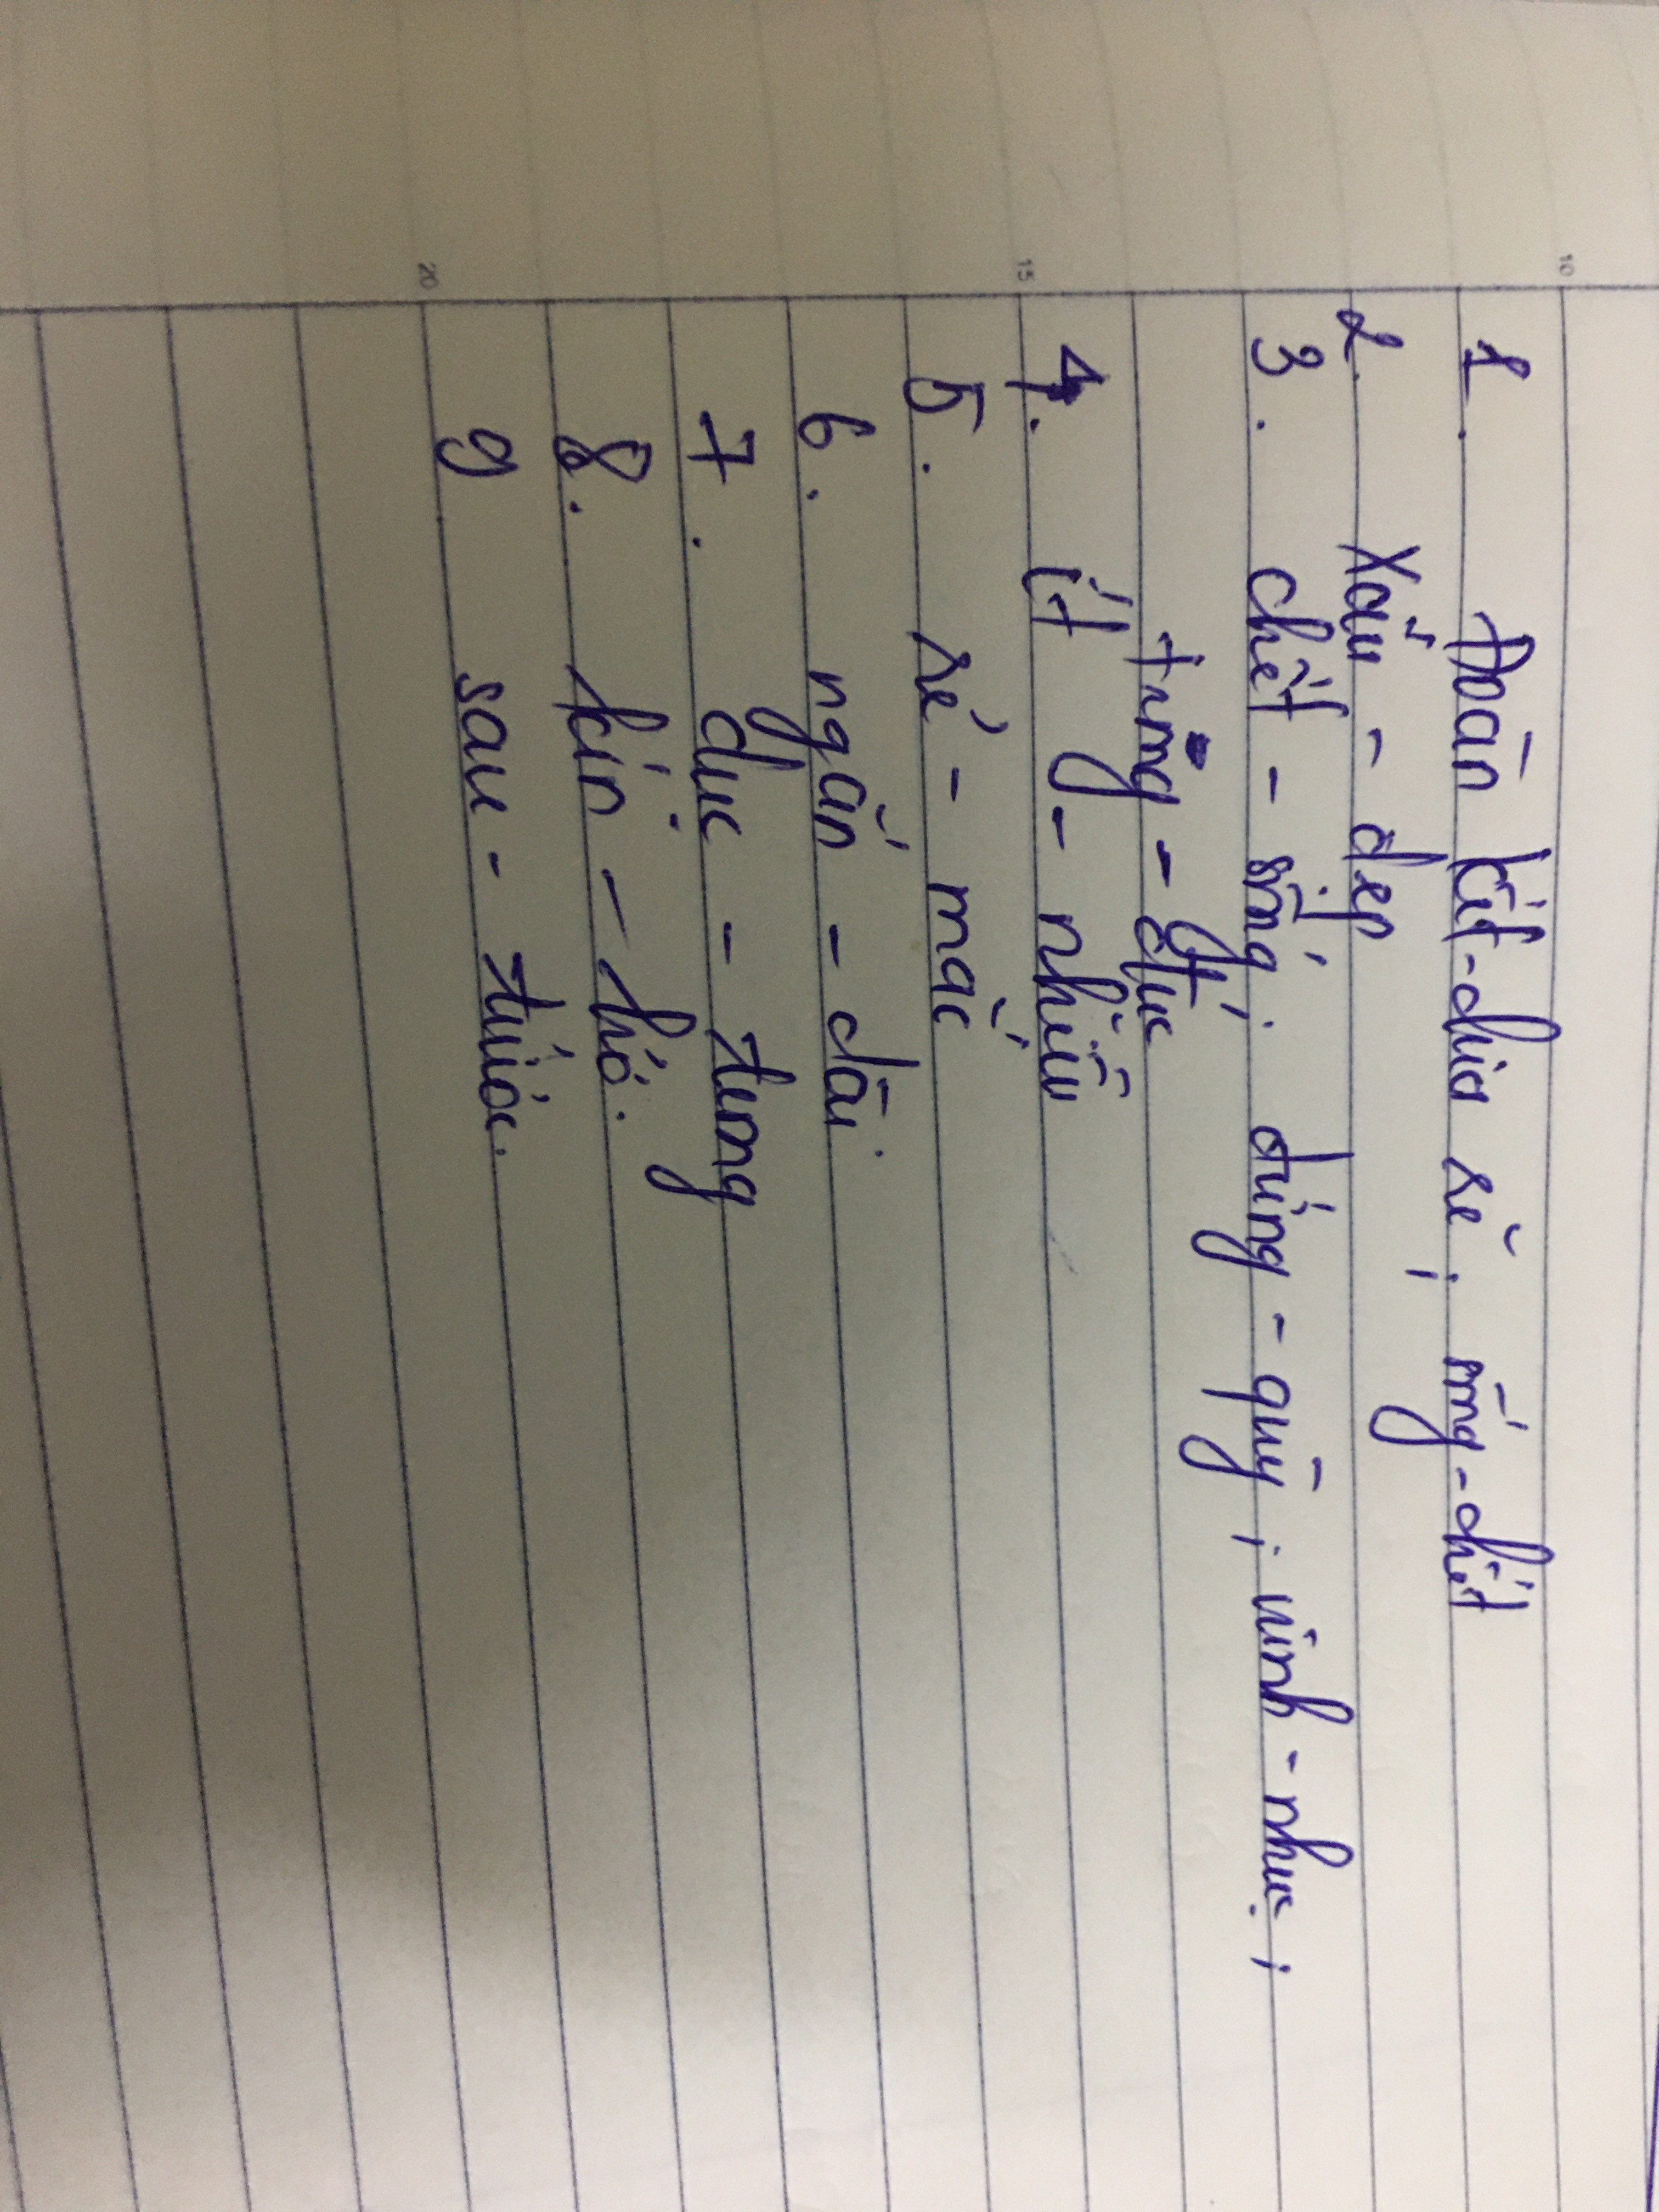 10
1. Đoàn kết - chia rẽ ; sống - chết
2. Xấu - đẹp
3. chết - sống ; đứng - quỳ ; vinh - nhục ;
trong - đục
15 4. ít - nhiều
5. rẻ - mắc
6. ngắn - dài.
7. đục - trong
8. kín - hở.
20 9 sau - trước.